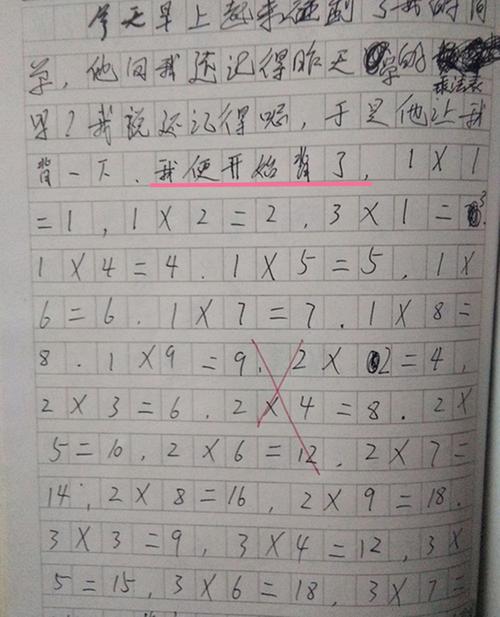 今天早上起来碰到了我的同
学,他问我还记得昨天学的乘法表
吗?我说还记得呢,于是他让我
背一下.我便开始背了,1×1
=1,1×2=2.3×1=3.
1×4=4.1×5=5.1×
6=6.1×7=7.1×8=
8.1×9=9.2×2=4,
2×3=6.2×4=8.2×
5=10,2×6=12.2×7=
14,2×8=16,2×9=18.
3×3=9,3×4=12,3×
5=15,3×6=18,3×7=